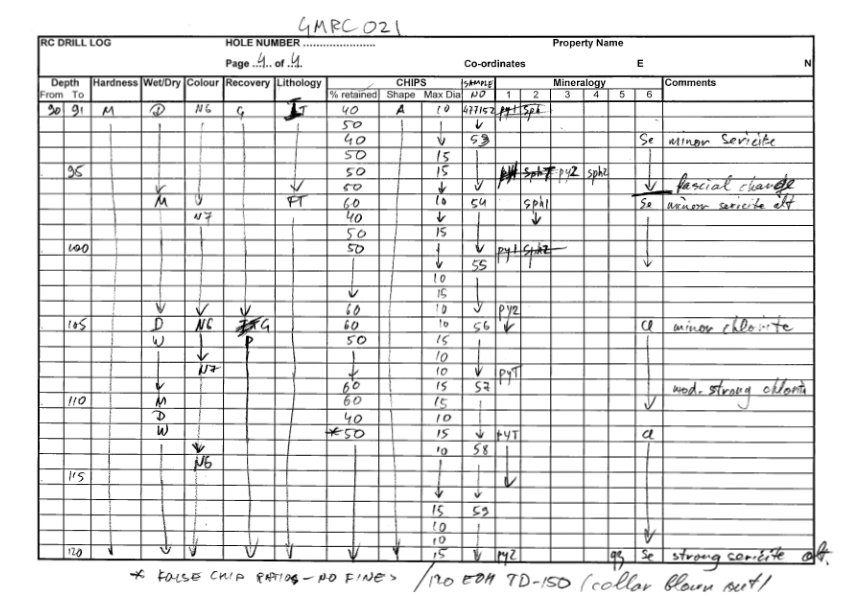 GMRC 021
RC DRILL LOG HOLE NUMBER ........................ Property Name
Page ..4.. of .4. Co-ordinates E N
Depth Hardness Wet/Dry Colour Recovery Lithology CHIPS SAMPLE Mineralogy Comments
From To % retained Shape Max Dia NO 1 2 3 4 5 6
90 91 M D N6 G T 40 A 10 477152 py1 sph
50
40 53 Se minor Sericite
50 15
95 50 15 py2 sph2
50 fascial change
M FT 60 10 54 sph1 Se minor sericite alt
N7 40
50 15
100 50 py1 sph2
55
10
15
60 10 py2
105 D N6 G 60 10 56 cl minor chlorite
W P 50 15
10
N7 10 pyT
60 15 57 mod. strong chlorite
110 M 60 15
D 40 10
W *50 15 pyT cl
10 58
N6
115
15 59
10
10
120 15 py2 q3 Se strong sericite alt.
* FALSE CHIP RATIOS - NO FINES / 120 EOH TD-150 (collar blown out)